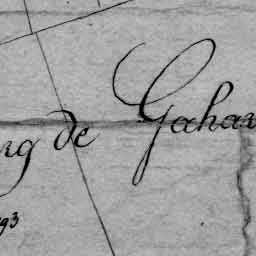 ng de Gahar
93